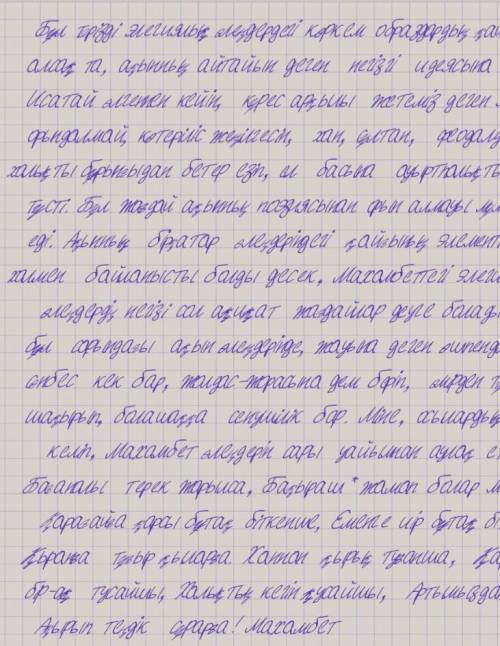 Бұл тәрізді элегиялық өлеңдердегі көркем образдардың қай
алаң та, ақынның айтайын деген негізгі идеясына
Исатай өлгеннен кейін, күрес арқылы жетеміз деген
орындалмай, көтеріліс жеңілгесін, хан, сұлтан, феодал
халықты бұрынғыдан бетер езіп, ел басына ауыртпалық
түсті. Бұл жағдай ақынның поэзиясынан орын алмауы мүм
еді. Ақынның бірқатар өлеңдеріндегі қайғының элемент
халмен байланысты болды десек, Махамбеттегі элеги
өлеңдердің негізі сол ақиқат жағдайлар деуге болады
бұл сарындағы ақын өлеңдерінде, жауына деген өшпенд
сөнбес кек бар, жолдас-жорасына дем беріп, өмірден
шақырып, болашаққа сенушілік бар. Міне, осылардың
келіп, Махамбет өлеңдерін сары уайымнан аулақ е
Бағаналы терек жарылса, Бақыраш* жамап болар м
Қарағайға қарсы бұтақ біткенше, Еменге иір бұтақ бі
Қыранға тұғыр қыларға. Ханнан қырық туғанша, Қа
бір-ақ тусайшы, Халықтың кегін қусайшы, Артымызда
Ақырып теңдік сұрарға! Махамбет